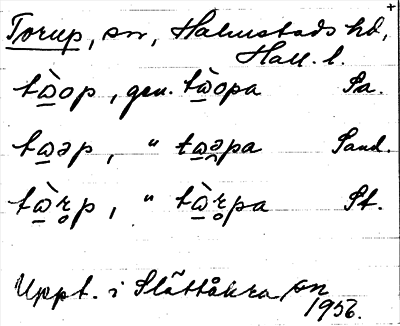 +
Torup, sn, Halmstads hd,
Hall. l.
tὼop, gen. tὼopa Sa.
tωəp, " tωəpa Sand.
tὼr̥p, " tὼr̥pa St.
Uppt. i Slättåkra sn
1956.